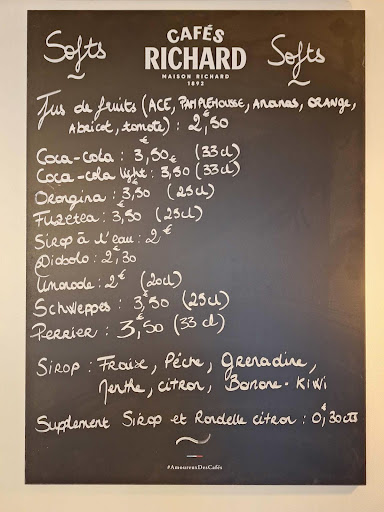 Softs
CAFÉS
RICHARD
MAISON RICHARD
1892
Softs
Jus de fruits (ACE, PAMPLEMOUSSE, Ananas, ORANGE,
Abricot, tomate) : 2€,50
Coca-cola : 3,50€ (33cl)
Coca-cola light : 3,50 (33cl)
Orangina : 3€,50 (25cl)
Fuzetea : 3€,50 (25cl)
Sirop à l'eau : 2€
Diabolo : 2€,30
Limonade : 2€ (20cl)
Schweppes : 3€,50 (25cl)
Perrier : 3€,50 (33 cl)
SIROP : Fraise, Pêche, Grenadine,
Menthe, citron, Banane-Kiwi
Supplement Sirop et Rondelle citron : 0€,30cts
#AmoureuxDesCafés